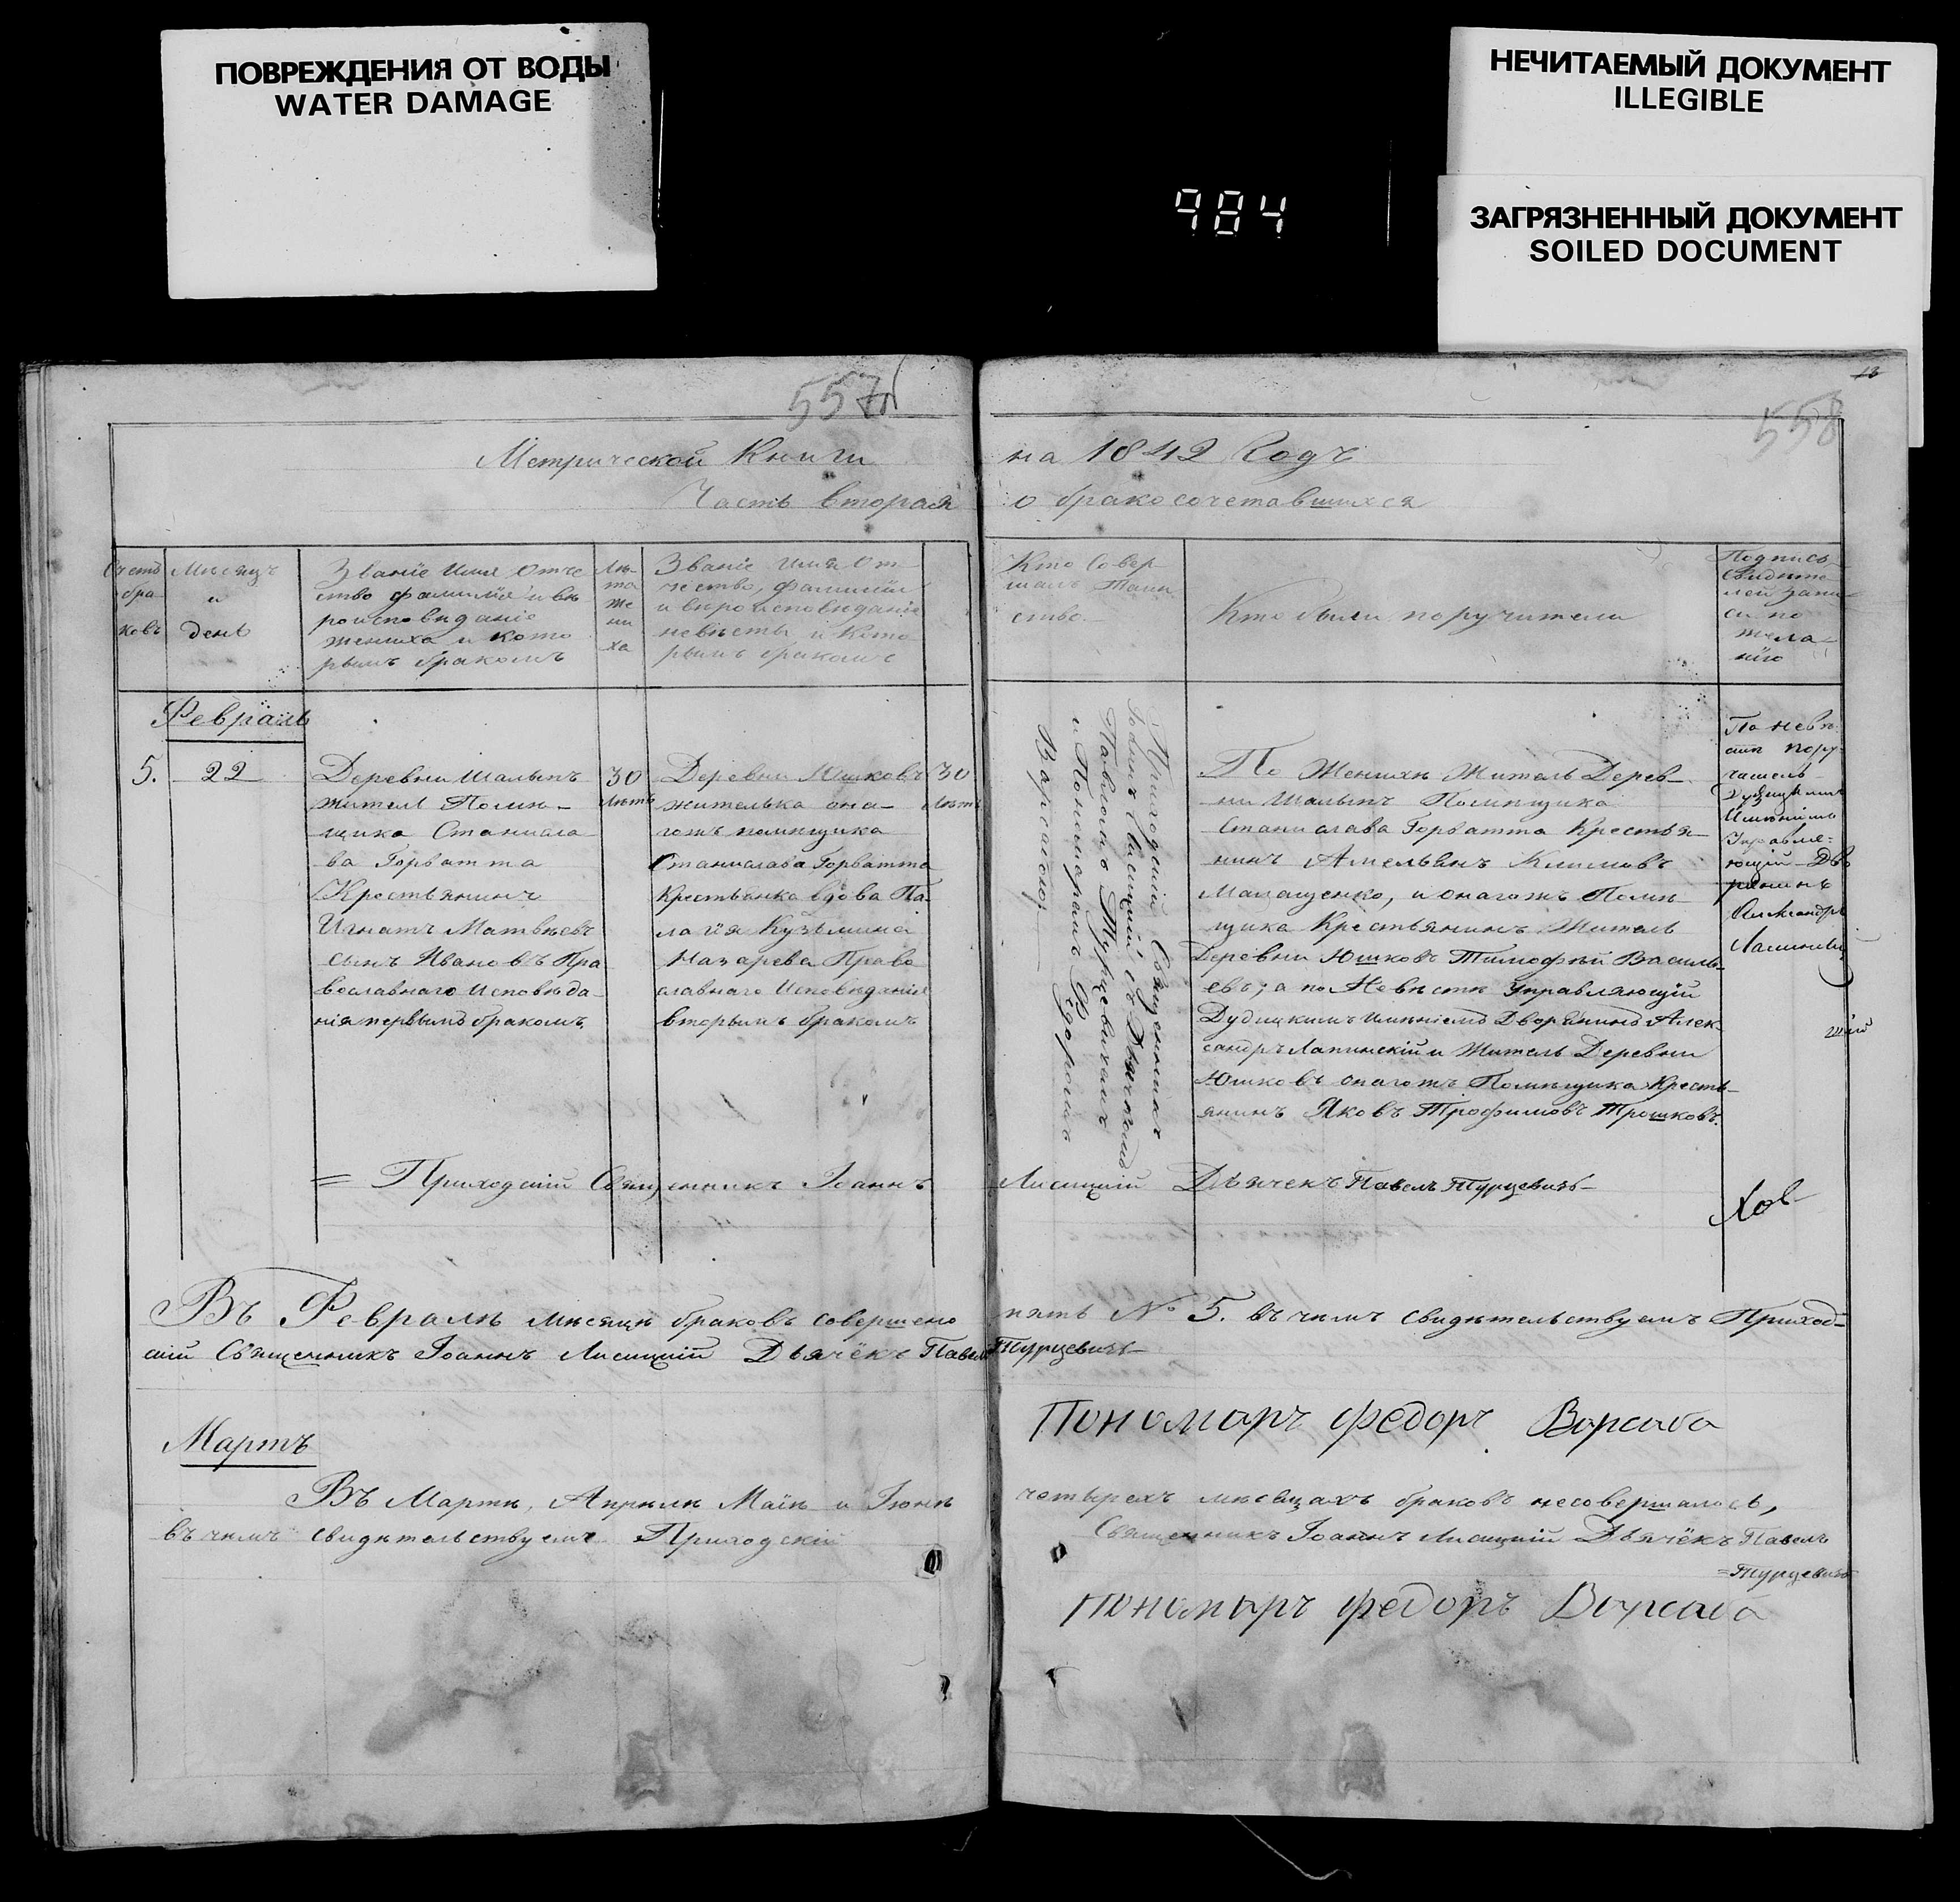 ПОВРЕЖДЕНИЯ ОТ ВОДЫ
WATER DAMAGE
НЕЧИТАЕМЫЙ ДОКУМЕНТ
ILLEGIBLE
ЗАГРЯЗНЕННЫЙ ДОКУМЕНТ
SOILED DOCUMENT
984
557
558
Метрической Книги на 1842 Годъ
Часть вторая о бракосочетавшихся
Счетъ
бра
ковъ
Мѣсяцъ
и
день
Званіе Имя Отче
ство фамилія и вѣ
роисповѣданіе
жениха и кото
рымъ бракомъ
Лѣ
та
же
ни
ха
Званіе имя От
чество, фамилія
и вѣроисповѣданіе
невѣсты и Кото
рымъ бракомъ
Кто Совер
шалъ Таин
ство
Кто были поручители
Подпись
свидѣте
лей запи
си по
жела
нію
Февраль
5.
22
Деревни Шалыпъ
житель Помѣ-
щика Станисла
ва Горватта
Крестьянинъ
Игнатъ Матвѣевъ
сынъ Ивановъ Пра
вославнаго исповѣда-
нія первымъ бракомъ
30
лѣтъ
Деревни Юшковъ
жителька она-
гожъ помѣщика
Станислава Горватта
Крестьянка вдова Па-
лагія Кузьмина
Назарева Право
славнаго Исповѣданія
вторымъ бракомъ
30
лѣтъ
Приходскій Священникъ
Іоаннъ Лисицкій съ Дьячкомъ
Павломъ Турцевичемъ
и Пономаремъ Ѳедоромъ
Варсабою
По Женихѣ Житель Дерев-
ни Шалыпъ Помѣщика
Станислава Горватта Крестья-
нинъ Амельянъ Климовъ
Малащенко, и онагожъ Помѣ-
щика Крестьянинъ Житель
Деревни Юшковъ Тимофѣй Василь-
евъ; а по Невѣстѣ Управляющій
Дудицкимъ имѣніемъ Дворянинъ Алек-
сандръ Лапинскій и Житель Деревни
Юшковъ онагожъ Помѣщика Кресть-
янинъ Яковъ Трофимовъ Трошковъ.
По невѣ
стѣ пору
читель
Дудицкимъ
Имѣніемъ
Управля-
ющій Дво
рянинъ
Александръ
= Приходскій Священникъ Іоаннъ Лисицкій Дьячекъ Павелъ Турцевичъ
Въ Февралѣ мѣсяцѣ браковъ совершено пять № 5. въ чемъ свидѣтельствуемъ Приход-
скій Священникъ Іоаннъ Лисицкій Дьячёкъ Павелъ Турцевичъ
Пономаръ Федоръ Варсаба
Мартъ
Въ Мартѣ, Апрѣлѣ Маіѣ и Іюнѣ четырехъ мѣсяцахъ браковъ несовершалось,
въ чемъ свидѣтельствуемъ Приходскій Священникъ Іоаннъ Лисицкій Дьячёкъ Павелъ
Турцевичъ
Пономаръ Федоръ Варсаба